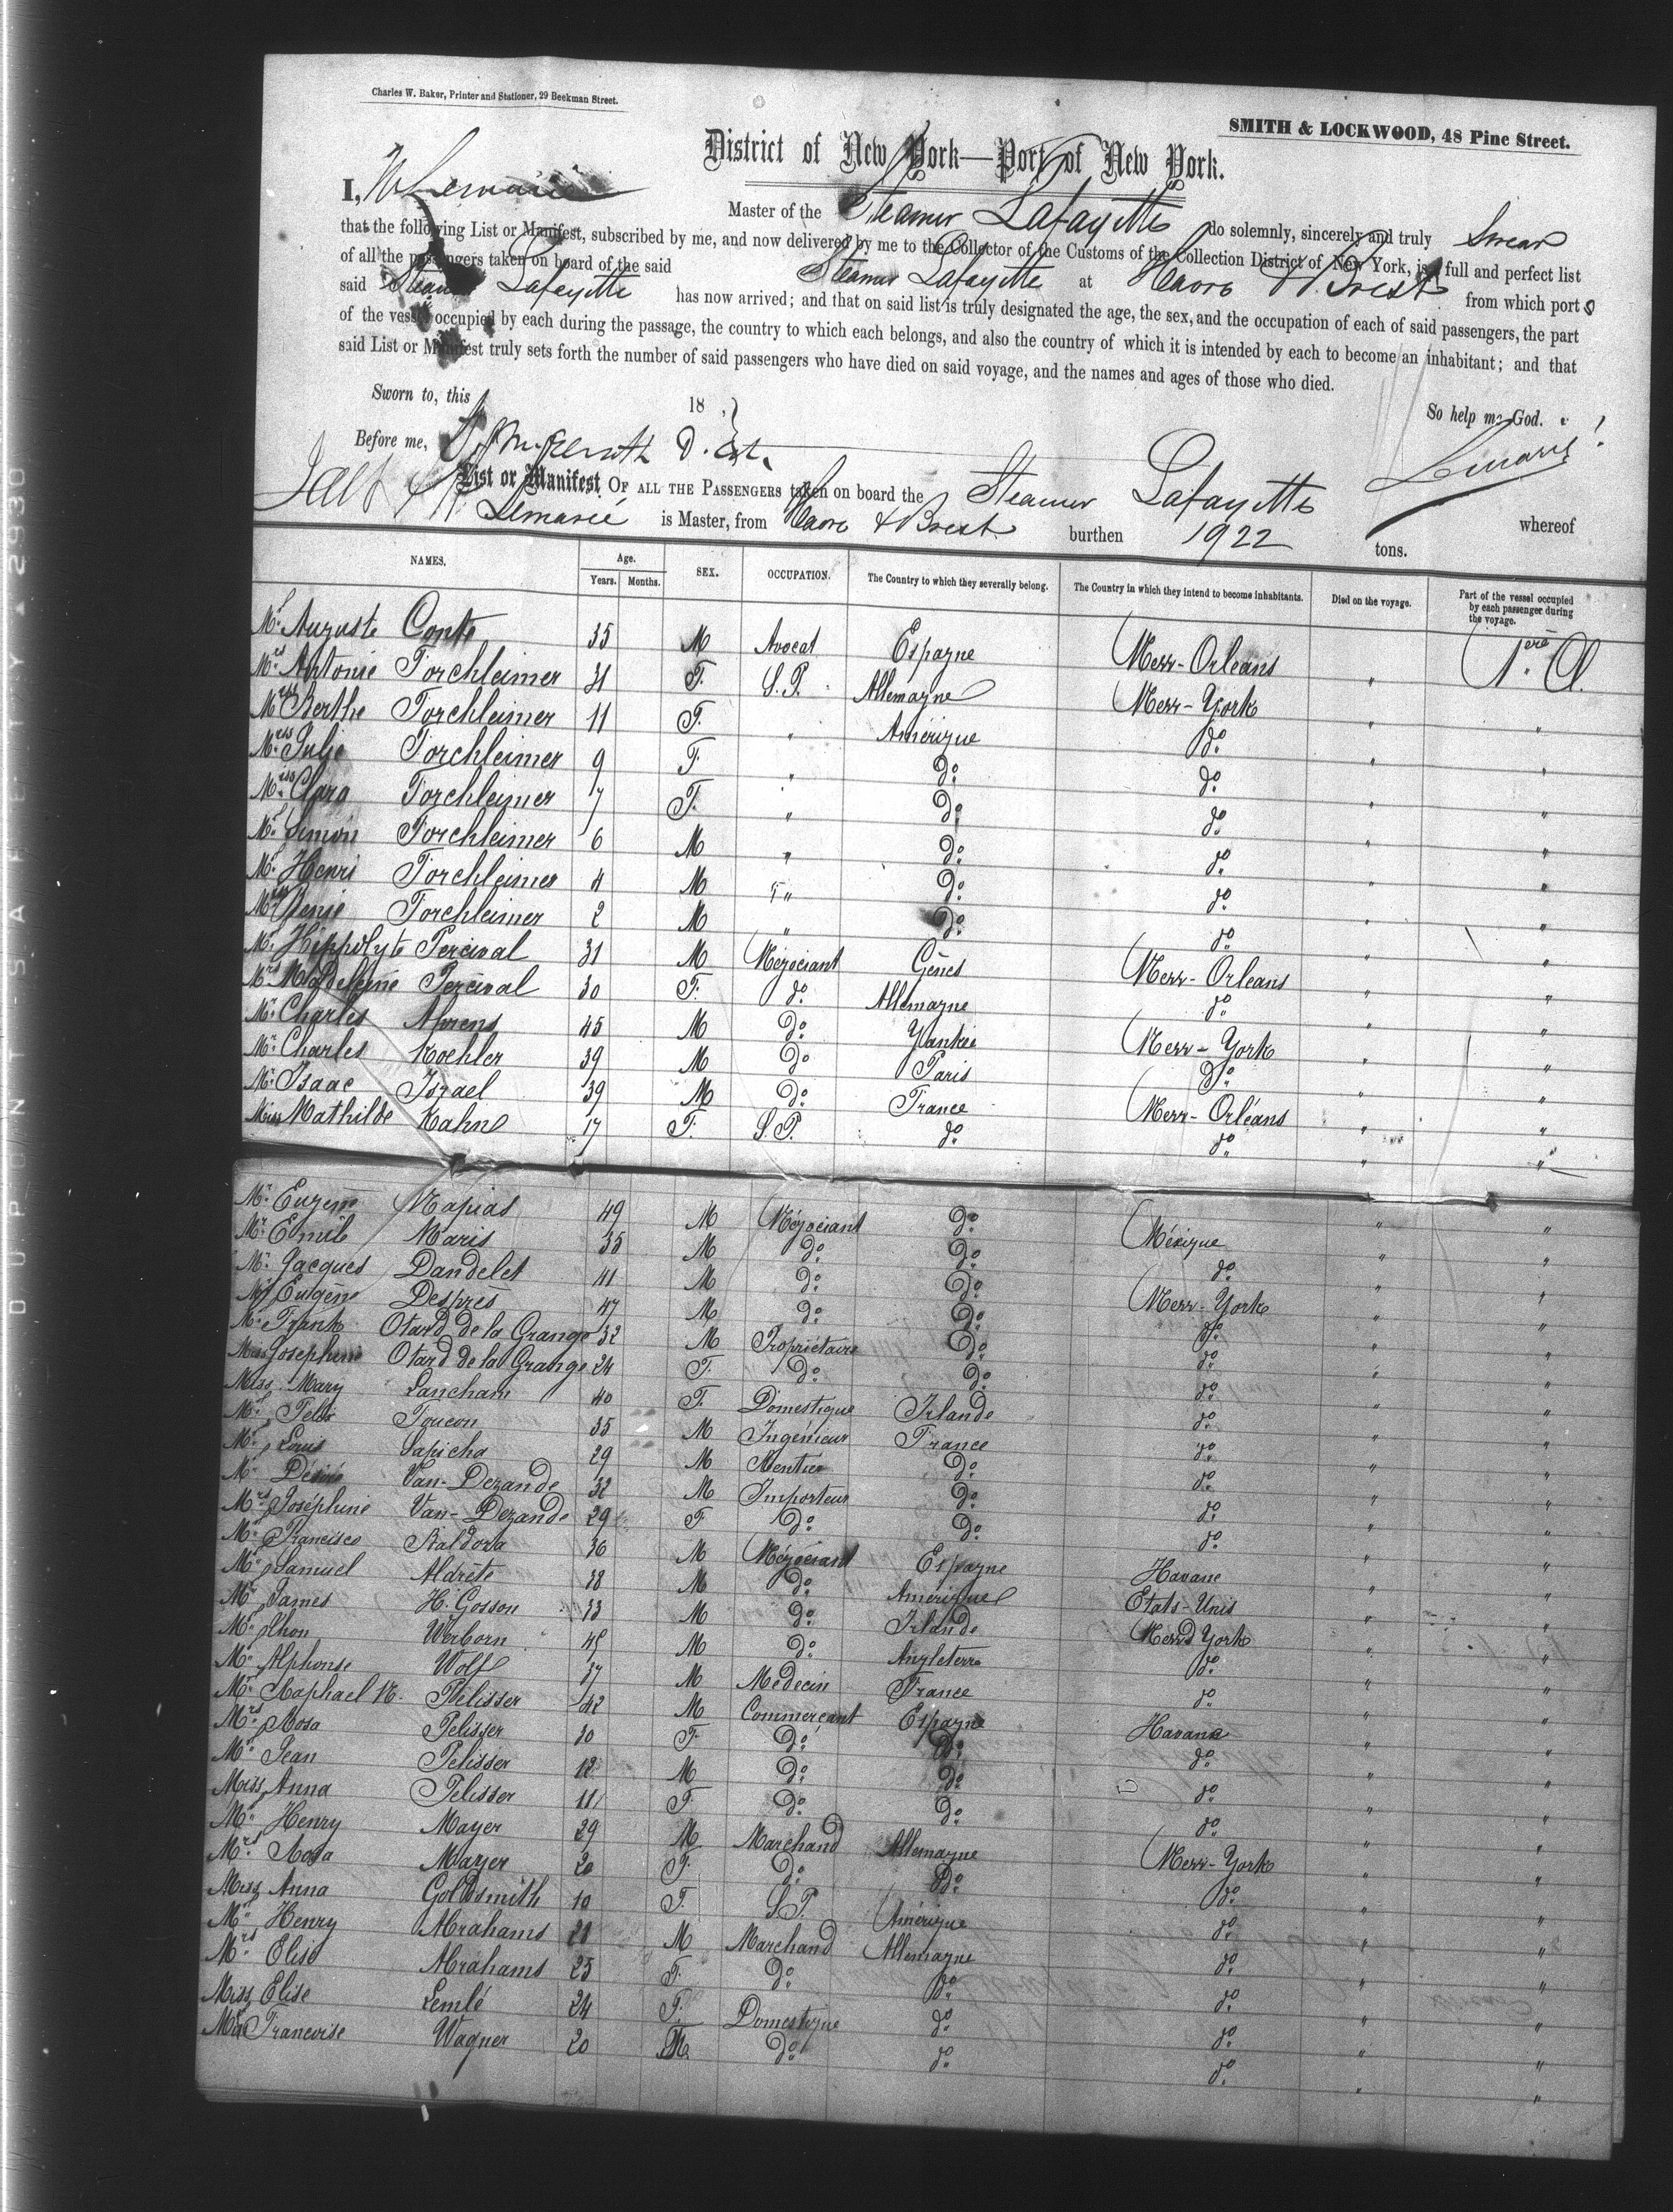 Charles W. Baker, Printer and Stationer, 29 Beekman Street.
SMITH & LOCKWOOD, 48 Pine Street.
District of New York—Port of New York.
I, Lemarié Master of the Steamer Lafayette do solemnly, sincerely and truly Swear
that the following List or Manifest, subscribed by me, and now delivered by me to the Collector of the Customs of the Collection District of New York, is a full and perfect list
of all the passengers taken on board of the said Steamer Lafayette at Havre & Brest from which port s
said Steamer Lafayette has now arrived; and that on said list is truly designated the age, the sex, and the occupation of each of said passengers, the part
of the vessel occupied by each during the passage, the country to which each belongs, and also the country of which it is intended by each to become an inhabitant; and that
said List or Manifest truly sets forth the number of said passengers who have died on said voyage, and the names and ages of those who died.
Sworn to, this 18 ,} So help me God.
Before me, Lemarié
List or Manifest OF ALL THE PASSENGERS taken on board the Steamer Lafayette whereof
Lemarié is Master, from Havre & Brest burthen 1922 tons.
NAMES. Age. Years. Months. SEX. OCCUPATION. The Country to which they severally belong. The Country in which they intend to become inhabitants. Died on the voyage. Part of the vessel occupied by each passenger during the voyage.
Mr. Auguste Conte 35 M Avocat Espagne New-Orléans " 1ère Cl.
Mrs. Antonie Forchleimer 31 F. S.P. Allemagne New-York " "
Miss Berthe Forchleimer 11 F. " Amérique do " "
Miss Julie Forchleimer 9 F. " do do " "
Miss Clara Forchleimer 7 F. " do do " "
Mr. Simon Forchleimer 6 M " do do " "
Mr. Henri Forchleimer 4 M " do do " "
Forchleimer 2 M " do do " "
Mr. Hippolyte Percival 31 M Négociant Gênes New-Orléans " "
Mrs. Madeleine Percival 30 F. do Allemagne do " "
Mr. Charles Ahrens 45 M do Yankie New-York " "
Mr. Charles Koehler 39 M do Paris do " "
Mr. Isaac Israel 39 M do France New-Orléans " "
Miss Mathilde Kahn 17 F. S.P. do do " "
Mr. Eugène Mapias 49 M Négociant do Méxique " "
Mr. Emile Maris 35 M do do do " "
Mr. Jacques Dandelet 41 M do do New-York " "
Mr. Eugène Desprès 47 M do do do " "
Mr. Frank Otard de la Grange 32 M Propriétaire do do " "
Josephine Otard de la Grange 24 F. do do do " "
Miss Mary Lancham 40 F. Domestique Irlande do " "
Mr. Felix Foucon 35 M Ingénieur France do " "
Mr. Louis Sapicha 29 M Rentier do do " "
Mr. Désiré Van-Dezande 32 M Importeur do do " "
Mrs. Joséphine Van-Dezande 29 F do do do " "
Mr. Francisco Baldora 36 M Négociant Espagne Havane " "
Mr. Samuel Aldrète 38 M do Amérique Etats-Unis " "
Mr. James H. Gosson 33 M do Irlande New York " "
Mr. Jhon Werborn M do Angleterre do " "
Mr. Alphonse Wolf 37 M Médecin France do " "
Mr. Raphael N. Pelisser 42 M Commerçant Espagne Havane " "
Mrs. Rosa Pelisser 30 F do do do " "
Mr. Jean Pelisser 12 M do do do " "
Miss Anna Pelisser 11 F do do do " "
Mr. Henry Mayer 29 M Marchand Allemagne New-York " "
Mrs. Rosa Mayer 20 F. do do do " "
Miss Anna Goldsmith 10 F. S.P. Amérique do " "
Mr. Henry Abrahams 28 M Marchand Allemagne do " "
Mrs. Elise Abrahams 25 F. do do do " "
Miss Elise Lemlé 24 F. Domestique do do " "
Francoise Wagner 20 do do do " "
DUPONT SAFETY 2930